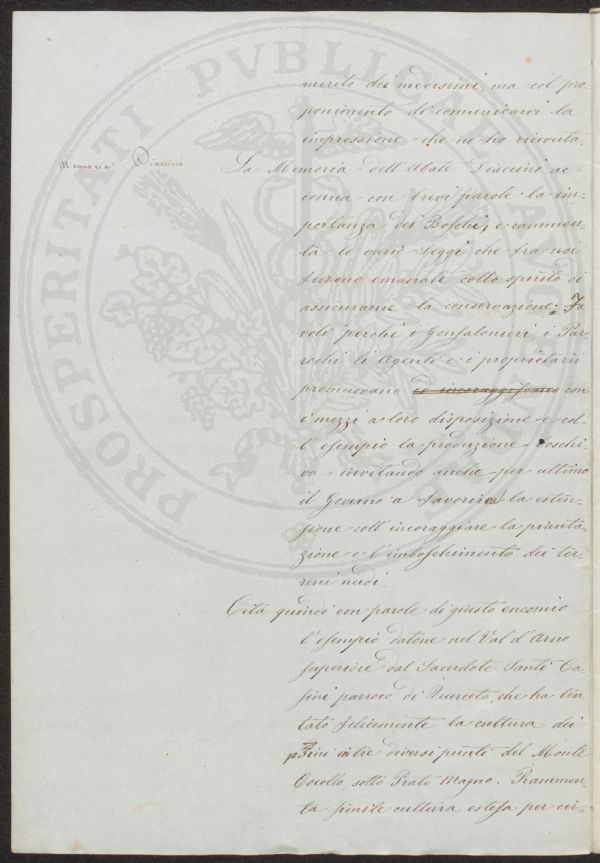 merito dei medesimi, ma col pro-
ponimento di comunicarvi la
impressione che ne ho ricevuta.
Memoria Diaccini
La Memoria dell'Abate Diaccini ac-
cenna con brevi parole la im-
portanza dei Boschi, e rammen-
ta le varie Leggi che fra noi
furono emanate collo spirito di
assicurarne la conservazione: Fa
voti perchè i Gonfalonieri i Par-
rochi li Agenti e i proprietarii
promuovano ed incoraggiscano con
i mezzi a loro disposizione e col-
l'esempio la produzione boschi-
va invitando anche per ultimo
il Governo a favorirne la esten-
sione coll'incoraggiare la pianta-
zione e l'imboschimento dei ter-
reni nudi.
Cita quindi con parole di giusto encomio
l'esempio datone nel Val d'Arno
superiore dal Sacerdote Santi Ca-
sini parroco di Querceto, che ha ten
tato felicemente la cultura dei
pini in tre diversi punti del Monte
Cocollo, sotto Prato Magno. Rammen-
ta simile cultura estesa per cir-
PROSPERITATI PVBLICAE